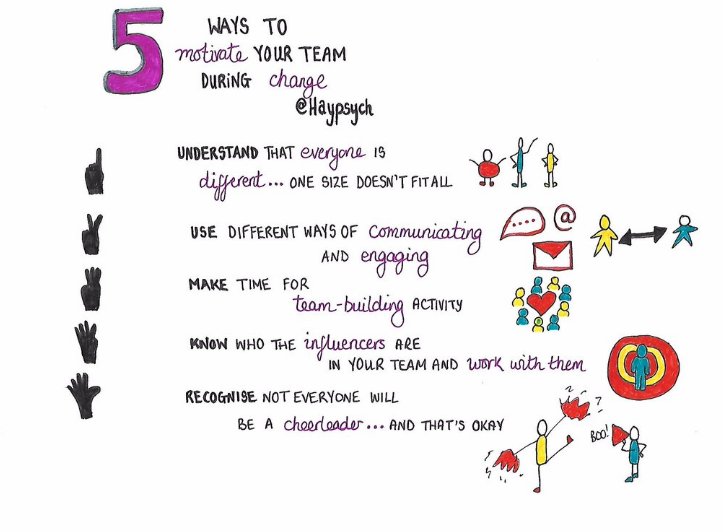 5 WAYS TO
motivate YOUR TEAM
DURING change
@Haypsych
UNDERSTAND THAT everyone IS
different... ONE SIZE DOESN'T FIT ALL
USE DIFFERENT WAYS OF communicating
AND engaging
@
MAKE TIME FOR
team-building ACTIVITY
KNOW WHO THE influencers ARE
IN YOUR TEAM AND work with them
RECOGNISE NOT EVERYONE WILL
BE A cheerleader... AND THAT'S OKAY
? ?
BOO!